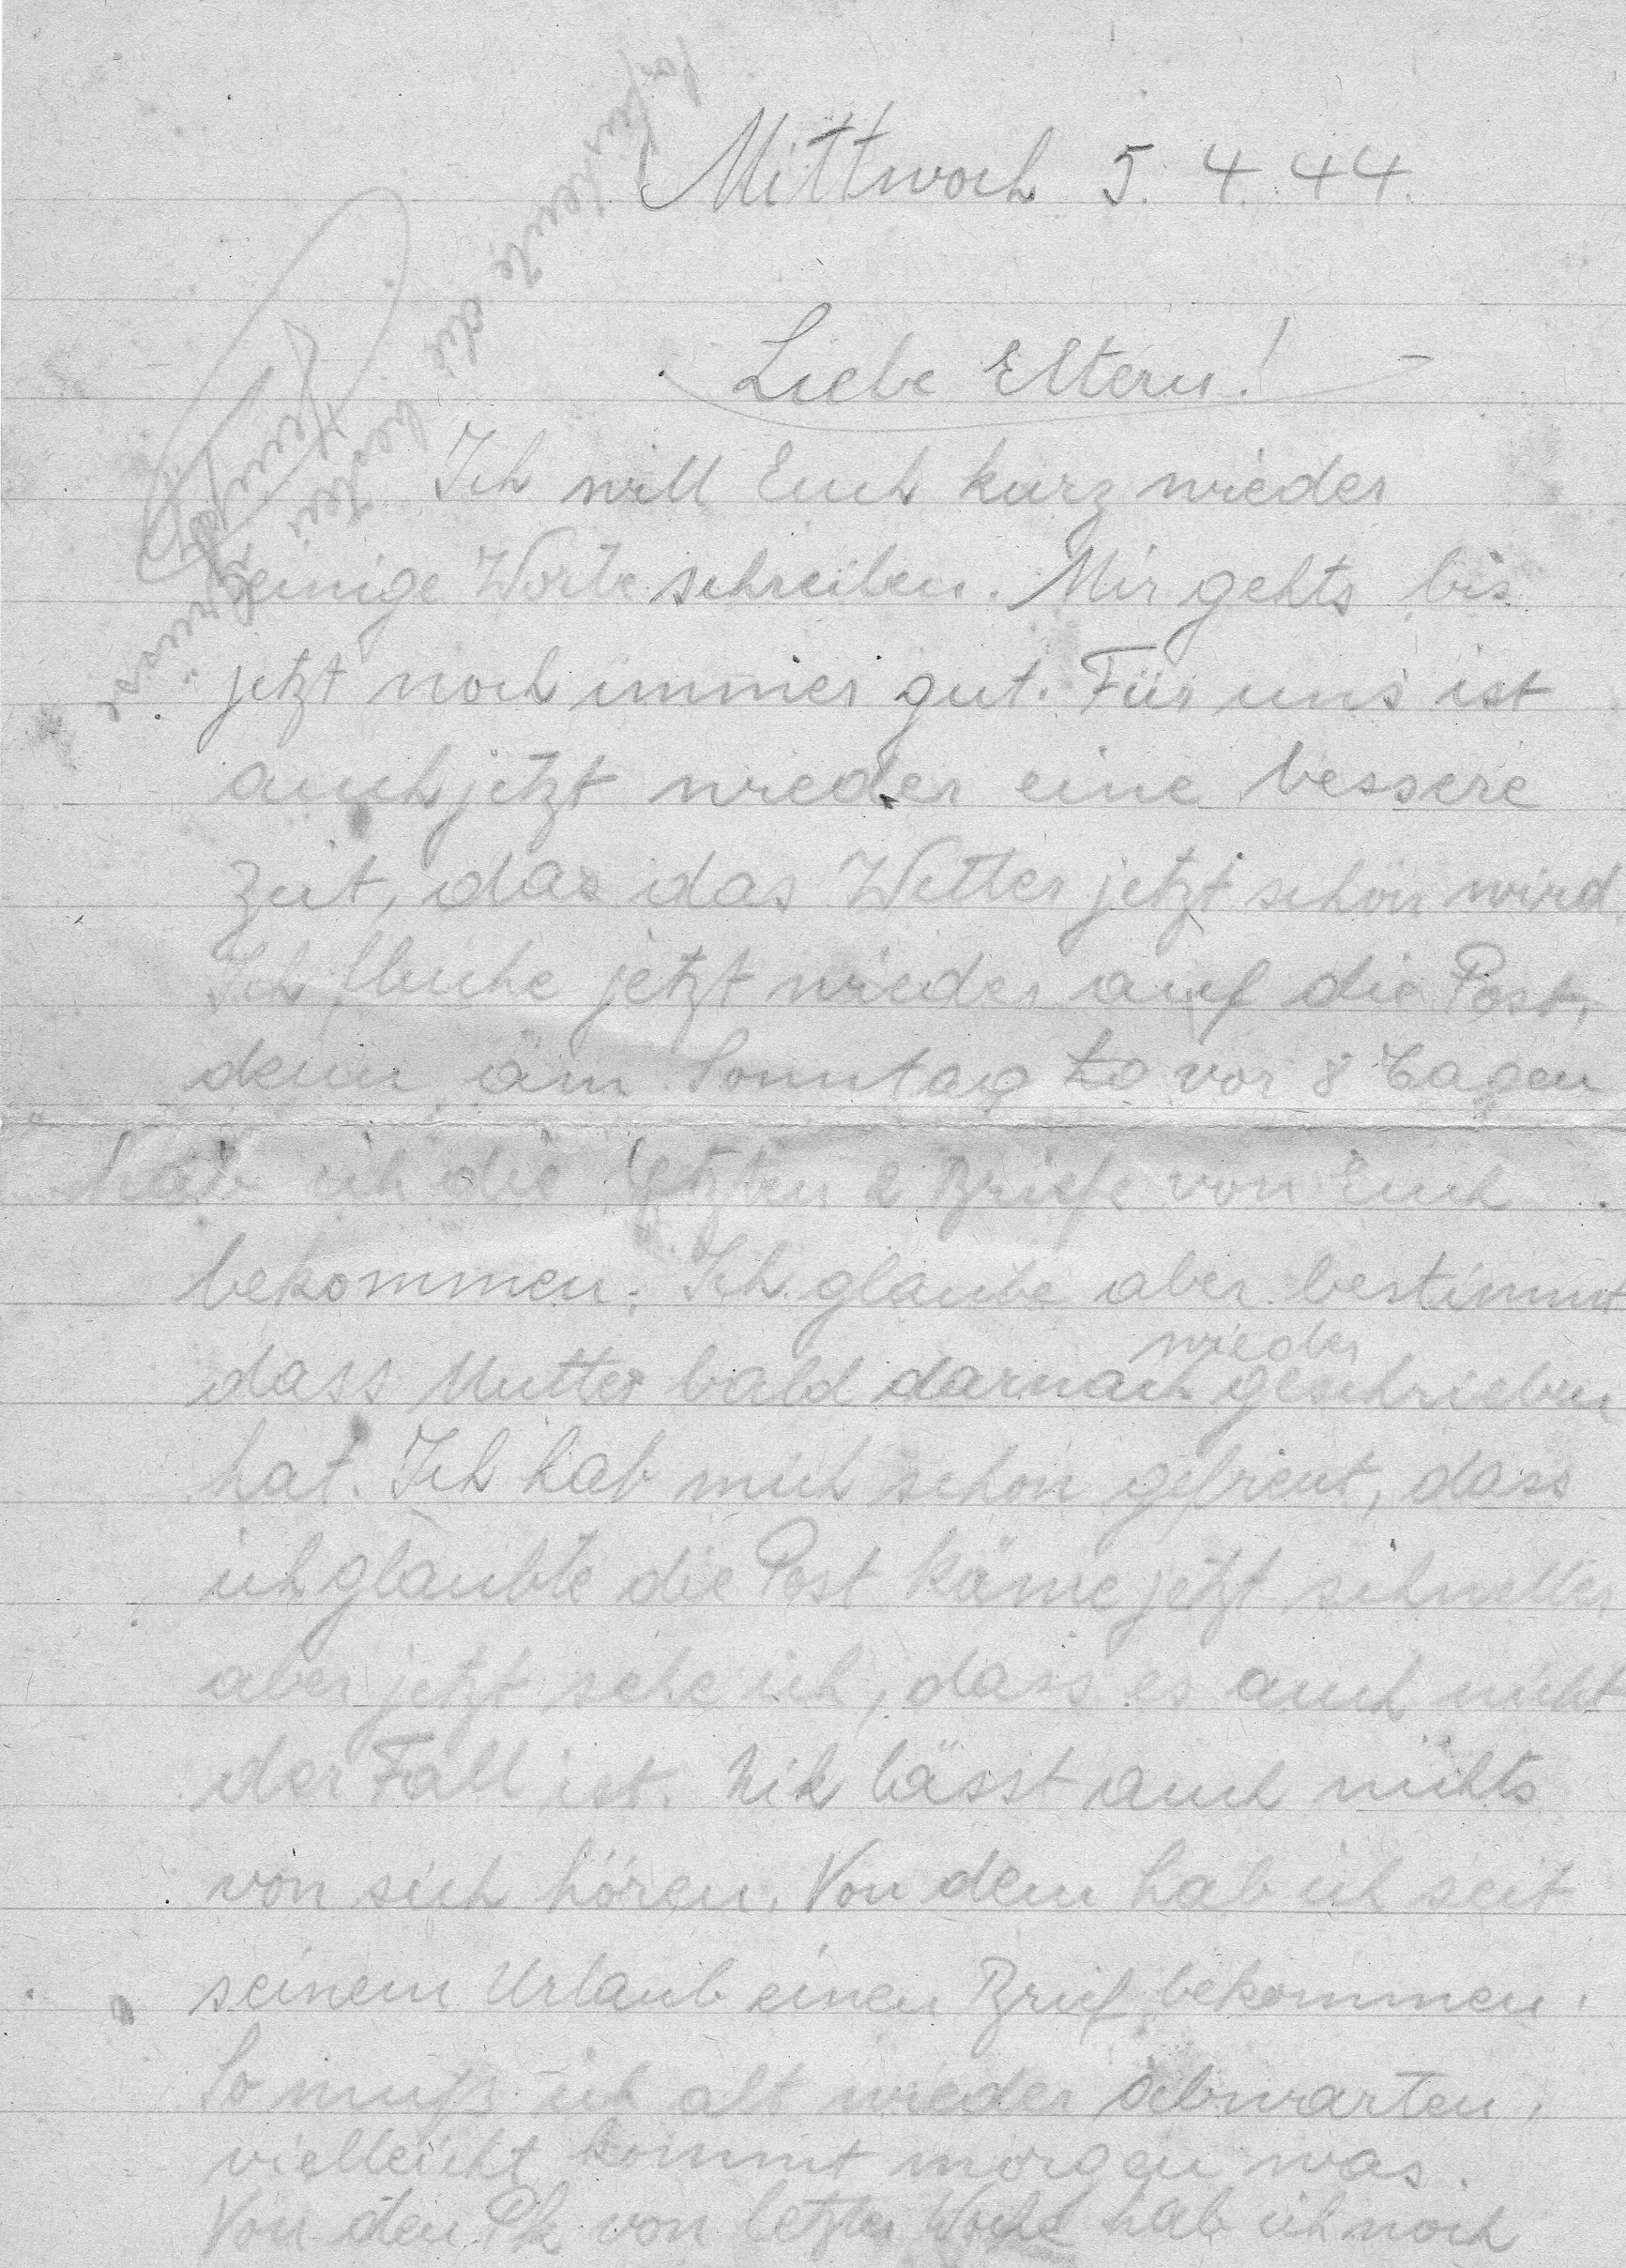 Mittwoch 5. 4. 44.
Liebe Eltern!
Ich will Euch kurz wieder
einige Worte schreiben. Mir gehts bis
jetzt noch immer gut. Für uns ist
auch jetzt wieder eine bessere
Zeit, das das Wetter jetzt schön wird.
Ich fluche jetzt wieder auf die Post,
denn am Sonntag vor 8 Tagen
hab ich die letzten 2 Briefe von Euch
bekommen. Ich glaube aber bestimmt
wieder
dass Mutter bald darnach geschrieben
hat. Ich hab mich schon gefreut, dass
ich glaubte die Post käme jetzt schneller
aber jetzt sehe ich, dass es auch nicht
der Fall ist. Nik lässt auch nichts
von sich hören. Von dem hab ich seit
seinem Urlaub einen Brief bekommen.
So muß ich alt wieder abwarten,
vielleicht kommt morgen was.
Von den Pk von letzter Woche hab ich noch